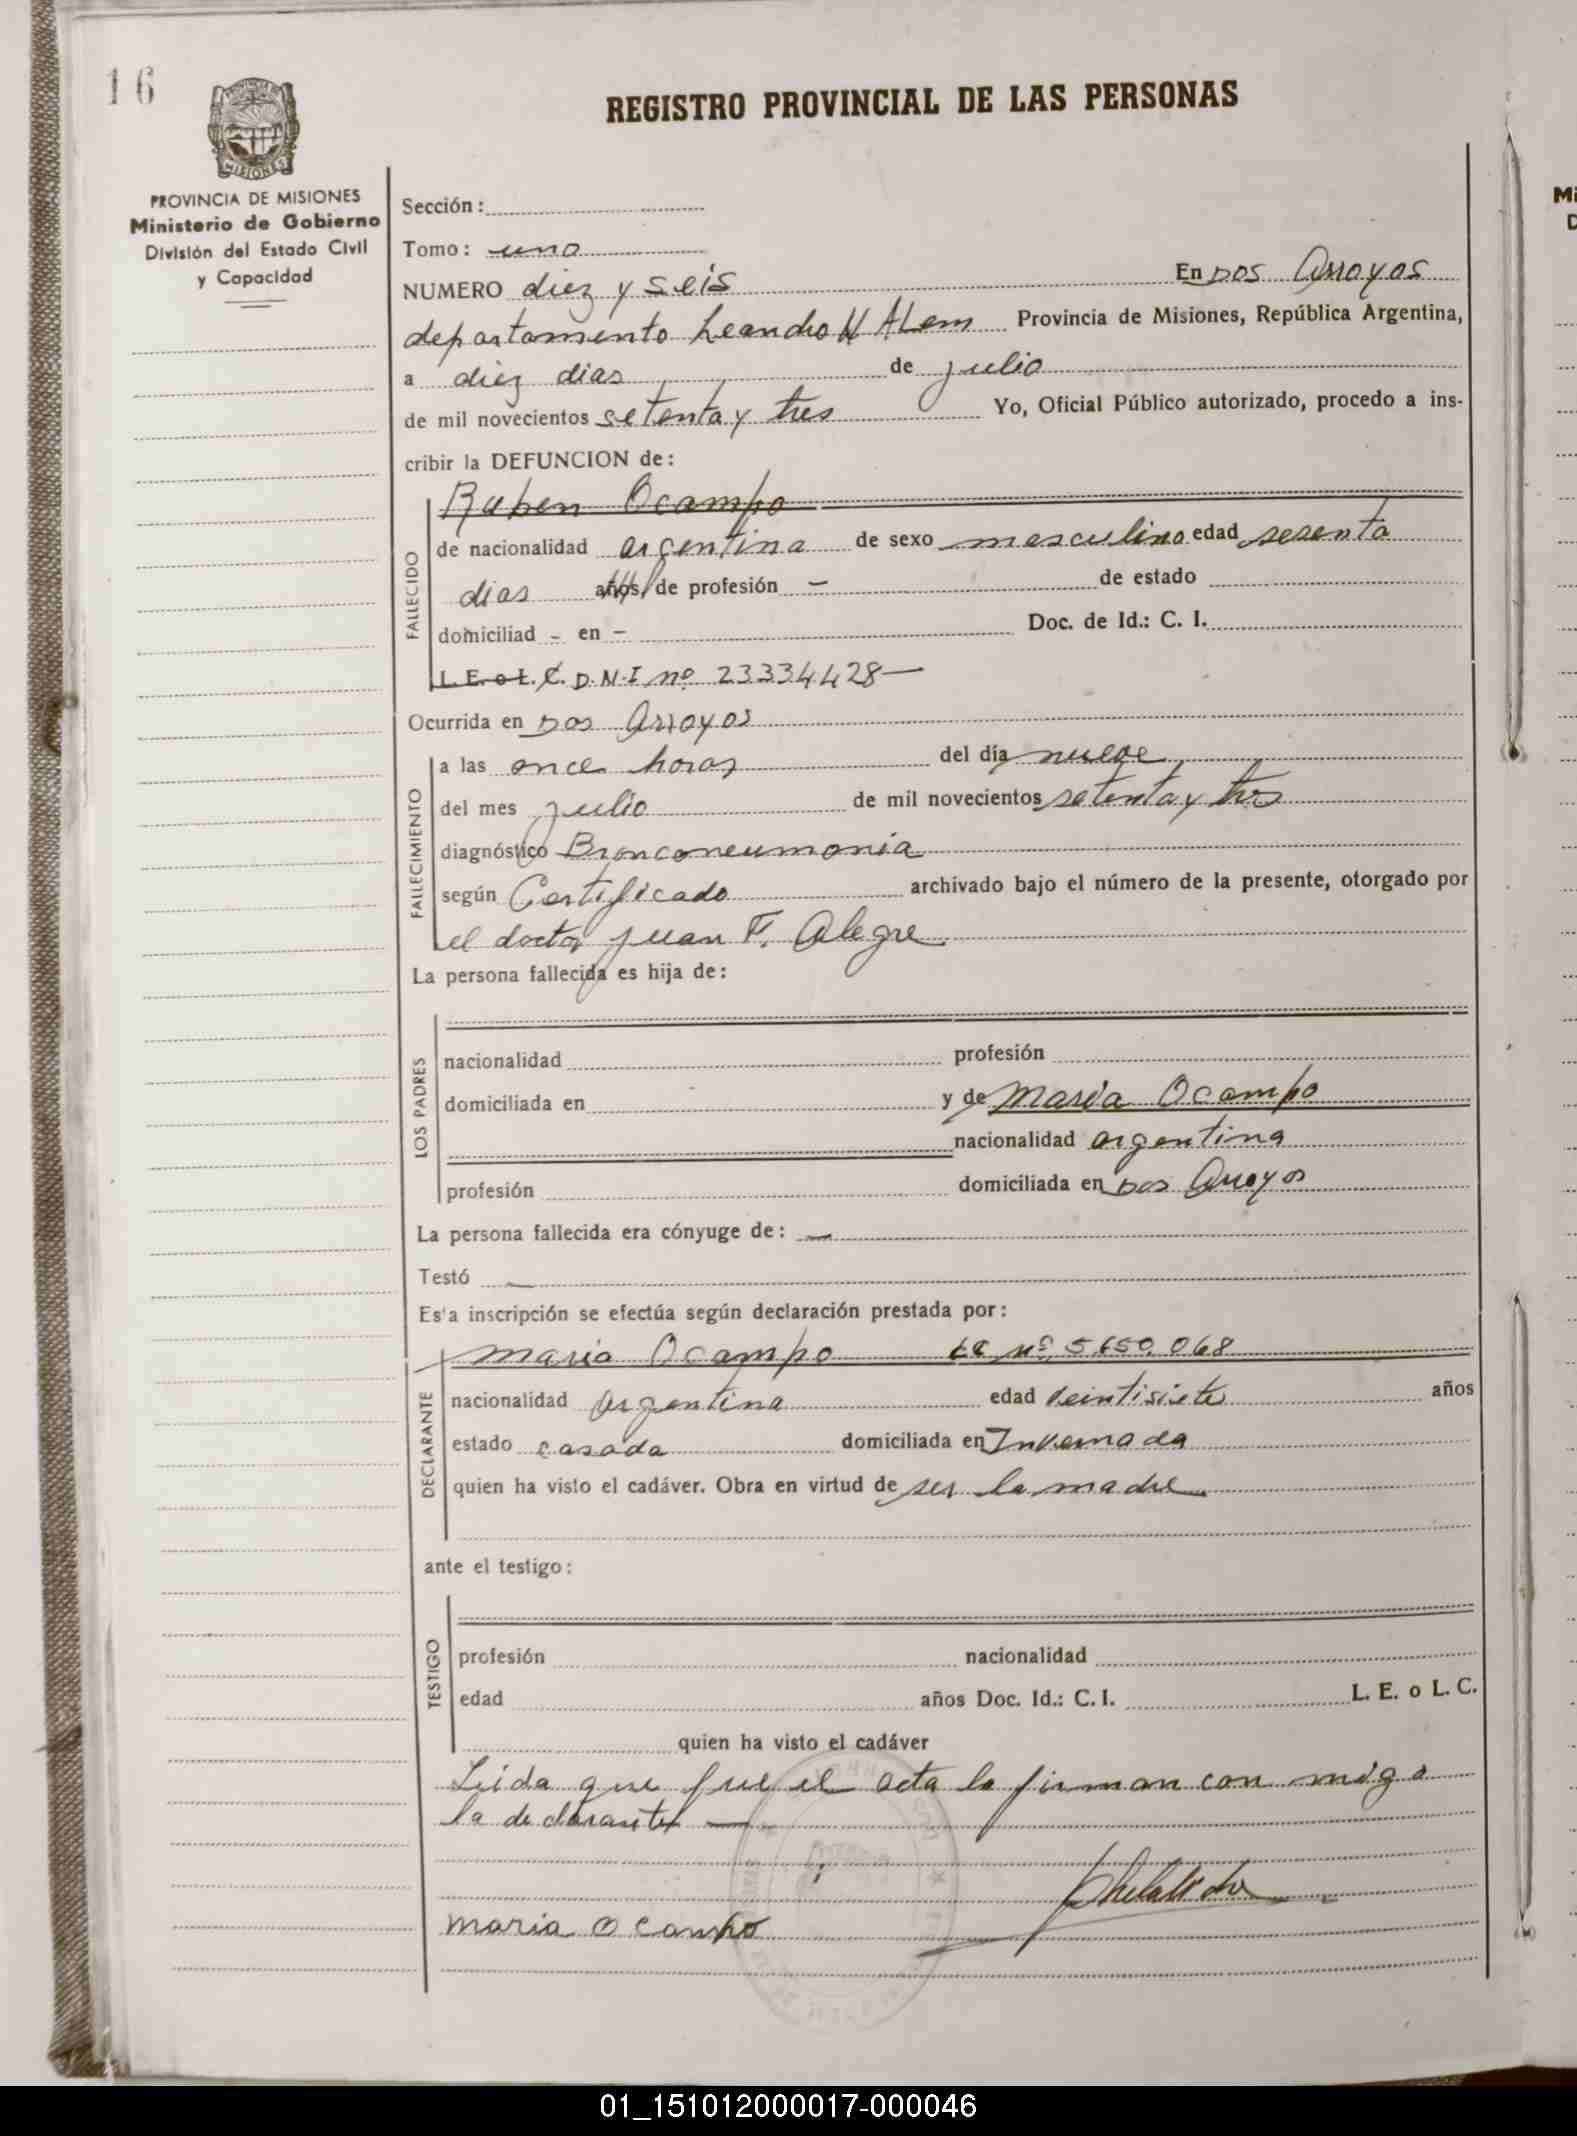 16
REGISTRO PROVINCIAL DE LAS PERSONAS
MISIONES
PROVINCIA DE MISIONES
Ministerio de Gobierno
División del Estado Civil
y Capacidad
Sección:
Tomo: uno
NUMERO diez y seis En Dos Arroyos
departamento Leandro N Alem Provincia de Misiones, República Argentina,
a diez dias de julio
de mil novecientos setenta y tres Yo, Oficial Público autorizado, procedo a ins-
cribir la DEFUNCION de:
FALLECIDO
Ruben Ocampo
de nacionalidad argentina de sexo masculino edad sesenta
dias años de profesión - de estado
domiciliad - en - Doc. de Id.: C. I.
L. E. o L. C. D.N.I nº 23334428-
Ocurrida en Dos Arroyos
FALLECIMIENTO
a las once horas del día nueve
del mes julio de mil novecientos setenta y tres
diagnóstico Bronconeumonia
según Certificado archivado bajo el número de la presente, otorgado por
el doctor Juan F. Alegre
La persona fallecida es hija de:
LOS PADRES
nacionalidad profesión
domiciliada en y de Maria Ocampo
nacionalidad argentina
profesión domiciliada en Dos Arroyos
La persona fallecida era cónyuge de: -
Testó -
Esta inscripción se efectúa según declaración prestada por:
DECLARANTE
Maria Ocampo LC nº 5.650.068
nacionalidad argentina edad veintisiete años
estado casada domiciliada en Invernada
quien ha visto el cadáver. Obra en virtud de ser la madre
ante el testigo:
TESTIGO
profesión nacionalidad
edad años Doc. Id.: C. I. L. E. o L. C.
quien ha visto el cadáver
Leida que fue el acta la firman con migo
la declarante -
maria Ocampo
Mi
D
01_151012000017-000046